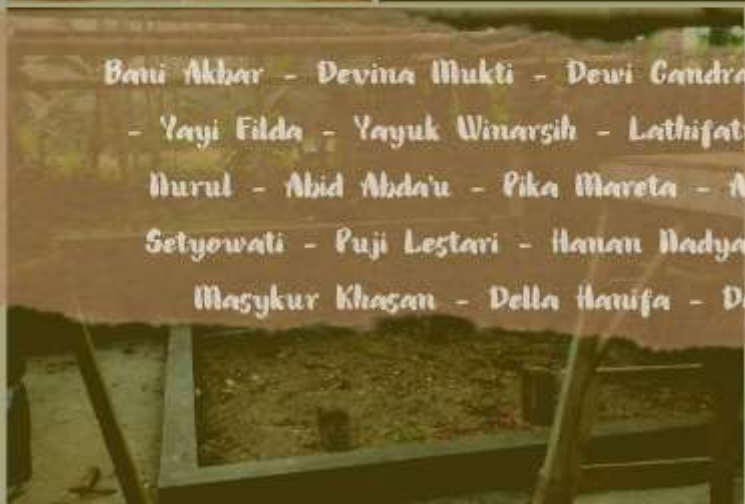 Bani Akbar - Devina Mukti - Dewi Candra
- Yayi Filda - Yayuk Winarsih -
Nurul - Abid Abda'u - Pika Mareta -
Setyowati - Puji Lestari - Hanan Nadya
Masykur Khasan - Della Hanifa -